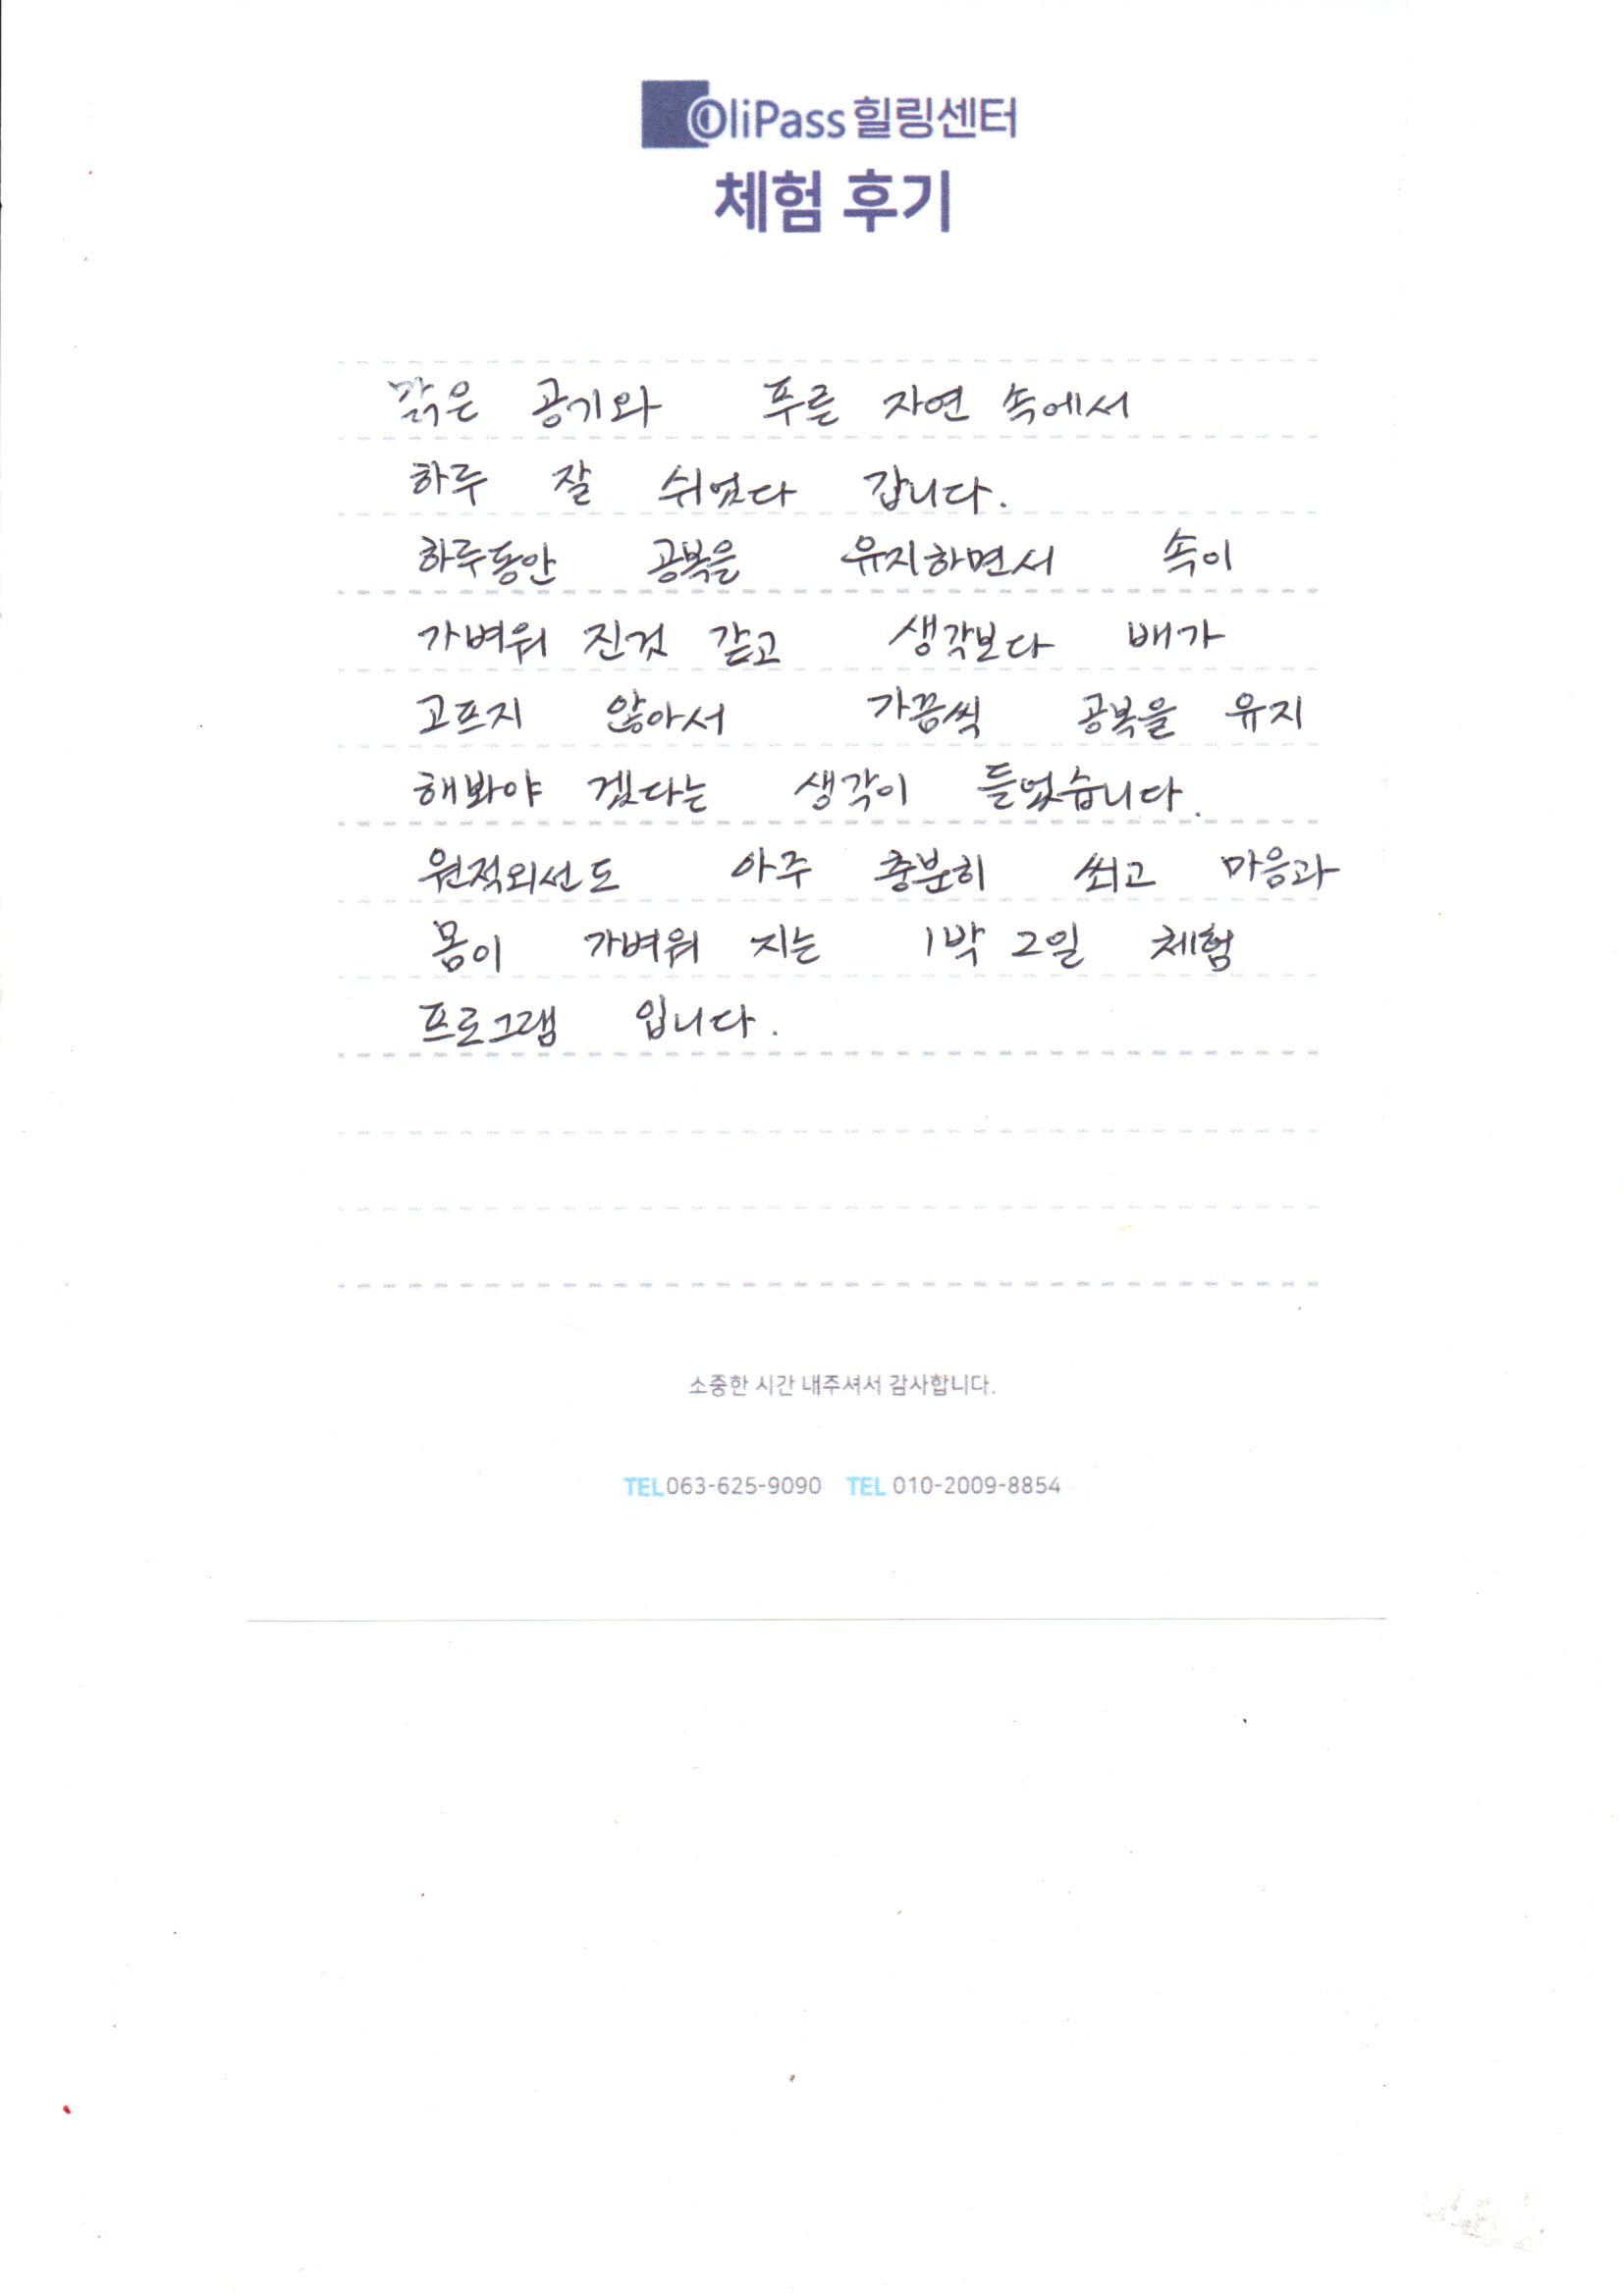 OliPass 힐링센터
체험 후기
맑은 공기와 푸른 자연 속에서
하루 잘 쉬었다 갑니다.
하루동안 공복을 유지하면서 속이
가벼워 진것 같고 생각보다 배가
고프지 않아서 가끔씩 공복을 유지
해봐야 겠다는 생각이 들었습니다.
원적외선도 아주 충분히 쐬고 마음과
몸이 가벼워 지는 1박 2일 체험
프로그램 입니다.
소중한 시간 내주셔서 감사합니다.
TEL 063-625-9090 TEL 010-2009-8854